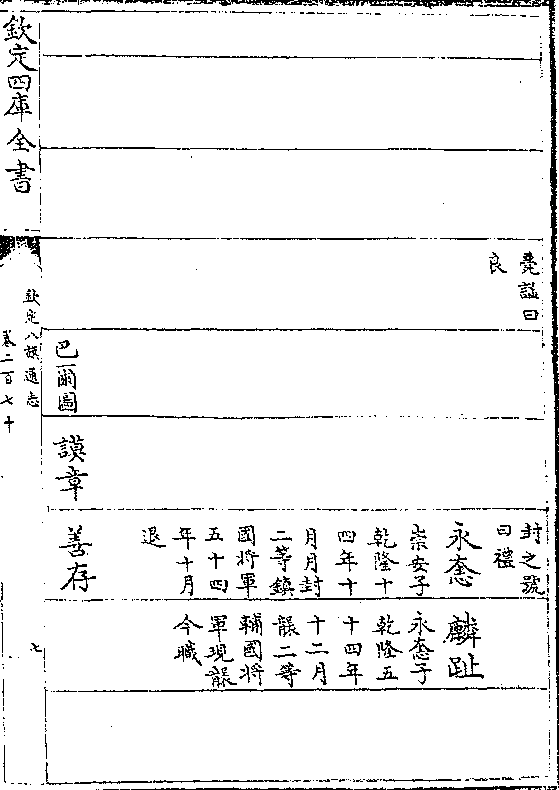 薨諡曰
良
封之號
曰禮
永㤗
崇安子
乾隆十
四年十
月月封
二等鎮
國將軍
五十四
年十月
退
麟趾
永㤗子
乾隆五
十四年
十二月
襲二等
輔國將
軍現襲
今職
巴爾圖
謨章
善存
欽定四庫全書
欽定八旗通志
卷二百七十
七